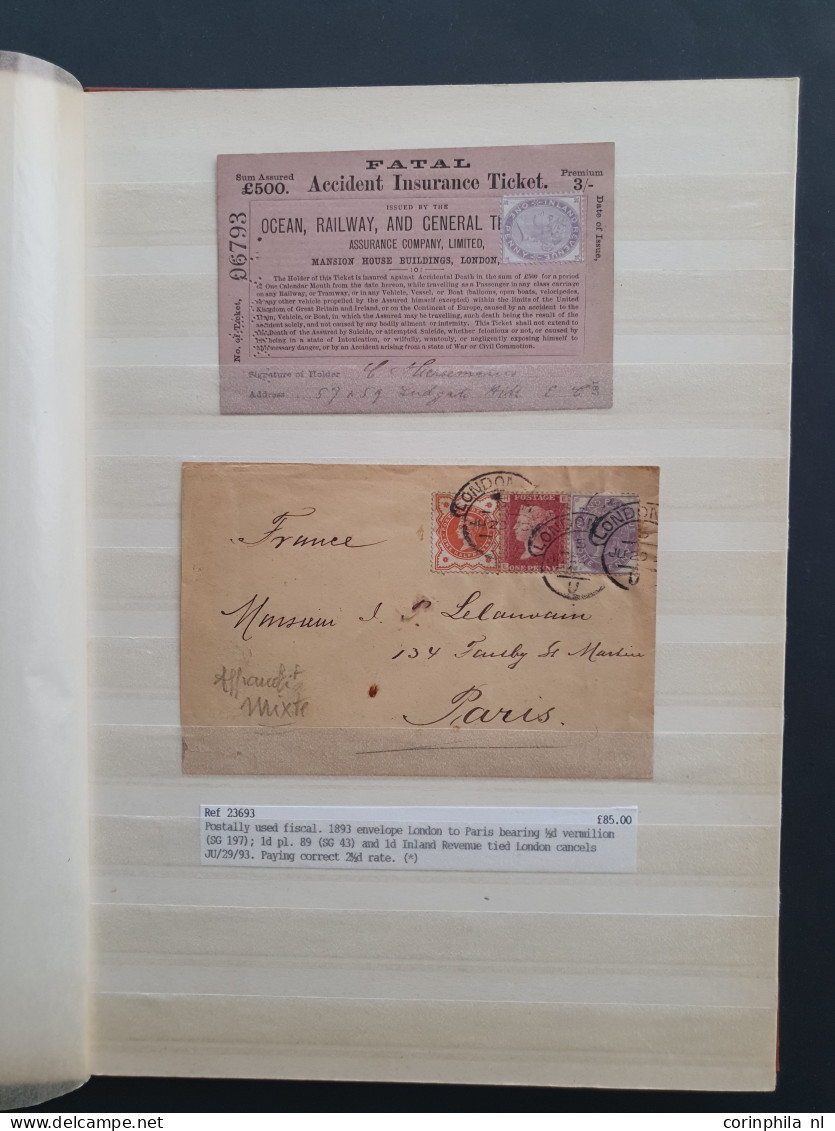 FATAL
Accident Insurance Ticket.
Sum Assured
£500.
Premium
3/-
Date of Issue,
No. of Ticket, 06793
ISSUED BY THE
OCEAN, RAILWAY, AND GENERAL
ASSURANCE COMPANY, LIMITED,
MANSION HOUSE BUILDINGS, LONDON,
The Holder of this Ticket is insured against Accidental Death in the sum of £500 for a period
of One Calendar Month from the date hereon, while travelling as a Passenger in any class carriage
on any Railway, or Tramway, or in any Vehicle, Vessel, or Boat (balloons, open boats, velocipedes,
any other vehicle propelled by the Assured himself excepted) within the limits of the United
Kingdom of Great Britain and Ireland, or on the Continent of Europe, caused by an accident to the
Train, Vehicle, or Boat, in which the Assured may be travelling, such death being the result of the
accident solely, and not caused by any bodily ailment or infirmity. This Ticket shall not extend to
Death of the Assured by Suicide, or attempted Suicide, whether felonious or not, or caused by
being in a state of Intoxication, or wilfully, wantonly, or negligently exposing himself to
danger, or by an Accident arising from a state of War or Civil Commotion.
Signature of Holder
Address 57 & 59 Ludgate Hill E C
INLAND
LONDON
POSTAGE
ONE PENNY
LONDON
LONDON
JU 29
France
Monsieur J. P.
134 Faubg St Martin
Paris.
Affranchit
Mixte
Ref 23693
£85.00
Postally used fiscal. 1893 envelope London to Paris bearing ½d vermilion
(SG 197); 1d pl. 89 (SG 43) and 1d Inland Revenue tied London cancels
JU/29/93. Paying correct 2½d rate. (*)
corinphila nl